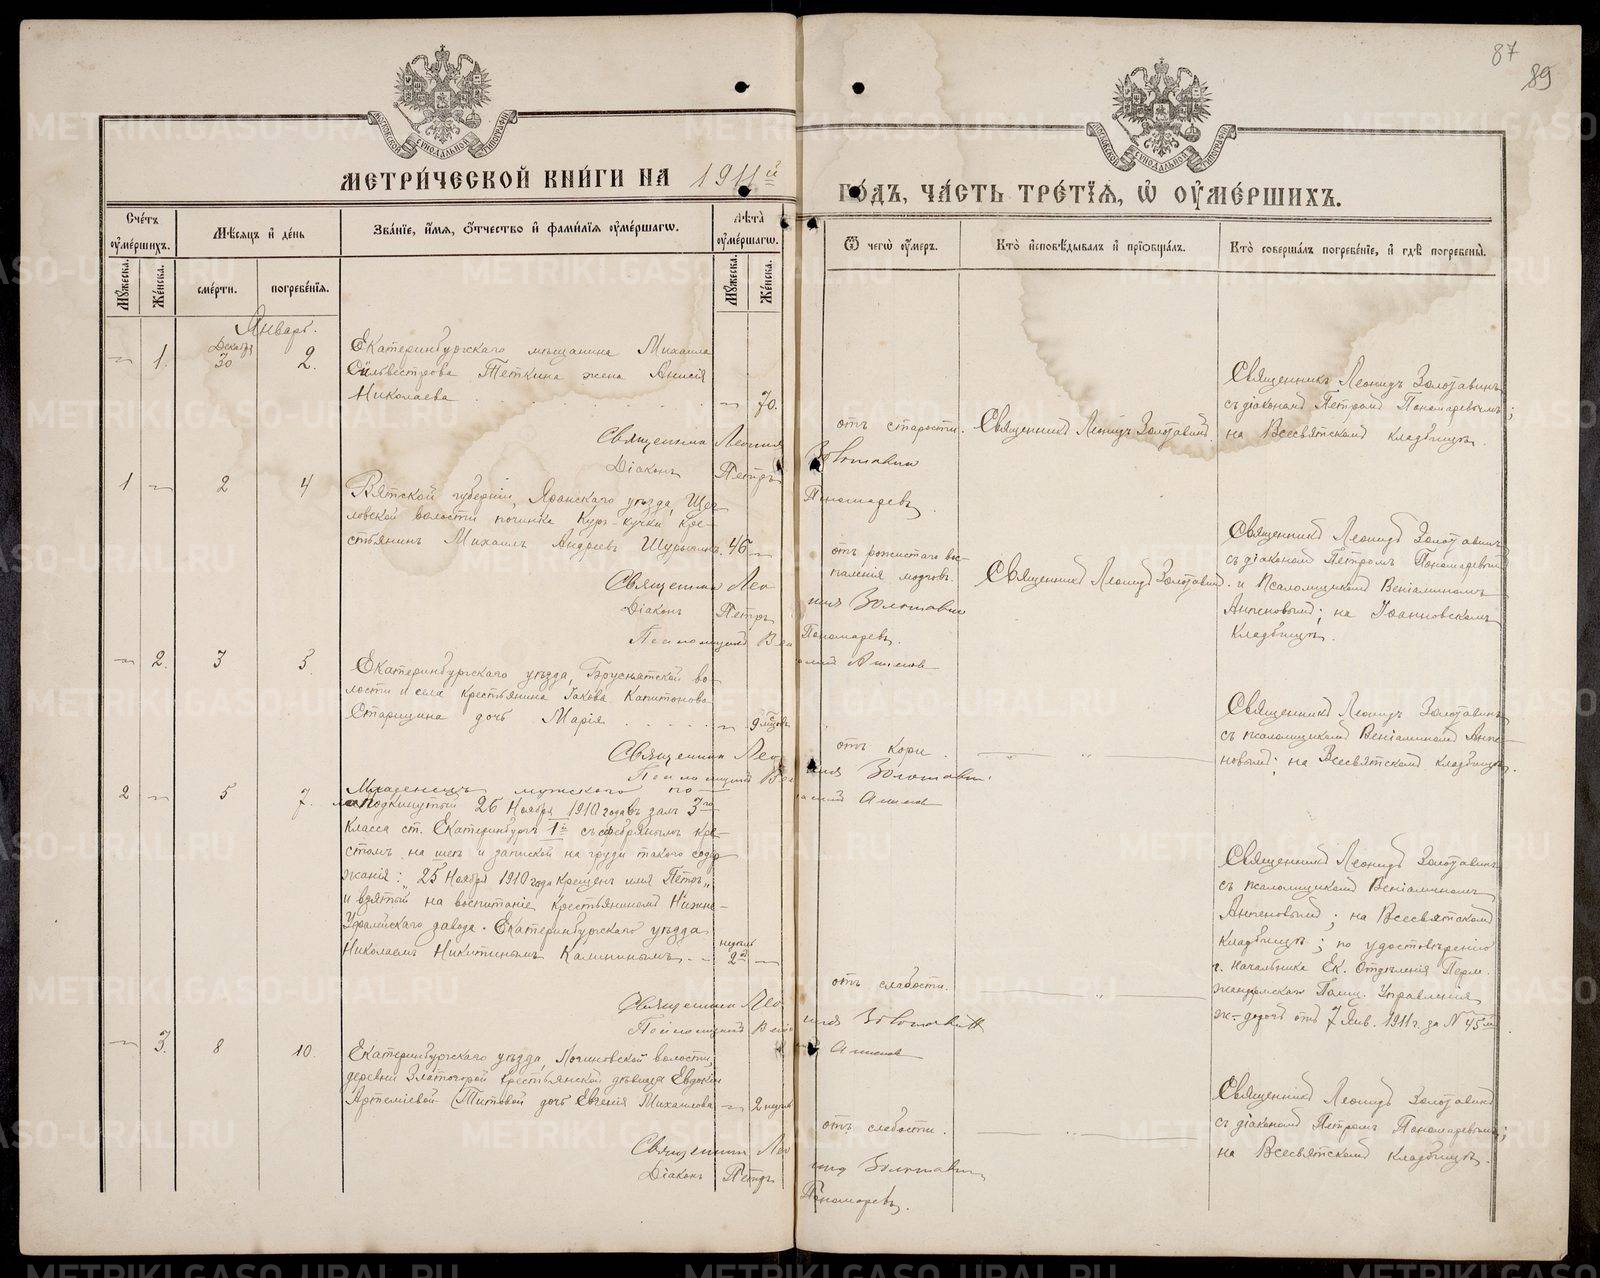 87
89
МОСКОВСКОЙ СУНОДАЛЬНОЙ ТИПОГРАФІИ
МОСКОВСКОЙ СУНОДАЛЬНОЙ ТИПОГРАФІИ
МЕТРИ́ЧЕСКОЙ КНИ́ГИ НА 1911й
ГО́ДЪ, ЧА́СТЬ ТРЕ́ТІѦ, Ѡ҆ ОУ҆МЕ́РШИХЪ.
Сче́тъ оу҆ме́ршихъ.
Мѣсѧцъ и҆ де́нь
Зва́нїе, и҆́мѧ, ѻ҆́тчество и҆ фами́лїѧ оу҆ме́ршагѡ.
Лѣта̀ оу҆ме́ршагѡ.
Ѿ чегѡ̀ оу҆́меръ.
Кто̀ и҆сповѣ́дывалъ и҆ прїѡбща́лъ.
Кто̀ соверша́лъ погребе́нїе, и҆ гдѣ̀ погребены̀.
Мꙋ́жеска.
Же́нска.
сме́рти.
погребе́нїѧ.
Мꙋ́жеска.
Же́нска.
Январь.
— 1. Декабрь 30 2.
Екатеринбургскаго мѣщанина Михаила
Сильвестрова Теткина жена Анисія
Николаева — 70.
отъ старости.
Священникъ Леонидъ Золотавинъ
Священникъ Леонидъ Золотавинъ
съ діакономъ Петромъ Пономаревымъ;
на Всесвятскомъ кладбищѣ.
Священникъ Леонидъ Золотавин
Діаконъ Петръ Пономаревъ.
1 — 2 4
Вятской губерніи, Яранскаго уѣзда,
ловской волости починка кре-
стьянинъ Михаилъ Андреевъ 46 —
отъ рожистаго вос-
паленія
Священникъ Леонидъ Золотавинъ
Священникъ Леонидъ Золотавинъ
съ діакономъ Петромъ Пономаревымъ
и Псаломщикомъ Веніаминомъ
на Іоанновскомъ
кладбищѣ.
Священник Леонид Золотавин
Діаконъ Петръ Пономаревъ.
Псаломщикъ
— 2. 3 5.
Екатеринбургскаго уѣзда, Брусянской во-
лости и села крестьянина Іакова Капитонова
Старицина дочь Марія — 9 мѣсяц.
отъ кори.
Священникъ Леонидъ Золотавинъ
съ псаломщикомъ Веніаминомъ
новымъ; на Всесвятскомъ кладбищѣ.
Священник Леонид Золотавин.
Псаломщикъ
2 — 5 7.
Младенецъ мужского по-
ла подкинутый 26 Ноября 1910 года въ залѣ 3го
класса ст. Екатеринбургъ Iй съ серебрянымъ кре-
стомъ на шеѣ и запиской на груди такого содер-
жанія: „25 Ноября 1910 года крещенъ имя Петръ„
и взятый на воспитаніе крестьяниномъ Нижне-
Уфалейскаго завода Екатеринбургскаго уѣзда
Николаемъ Никитинымъ Калининымъ. недѣль 2 —
отъ слабости.
Священникъ Леонидъ Золотавинъ
съ псаломщикомъ Веніаминомъ
на Всесвятскомъ
кладбищѣ; по удостовѣренію
г. Начальника Ек. Отдѣленія Перм.
Жандармскаго Полиц. Управленія
ж.-дорогъ отъ 7 Янв. 1911 г. за № 45
Священник Леонид Золотавин
Псаломщикъ
— 3. 8 10.
Екатеринбургскаго уѣзда, волости,
деревни Златогоровой крестьянской дѣвицы Евдокіи
Артеміевой Титовой дочь Евгенія Михаилова — 2 недѣль
отъ слабости.
Священникъ Леонидъ Золотавинъ
съ діакономъ Петромъ Пономаревымъ;
на Всесвятскомъ кладбищѣ.
Священник Леонид Золотавин
Діаконъ Петръ Пономаревъ.
METRIKI.GASO-URAL.RU